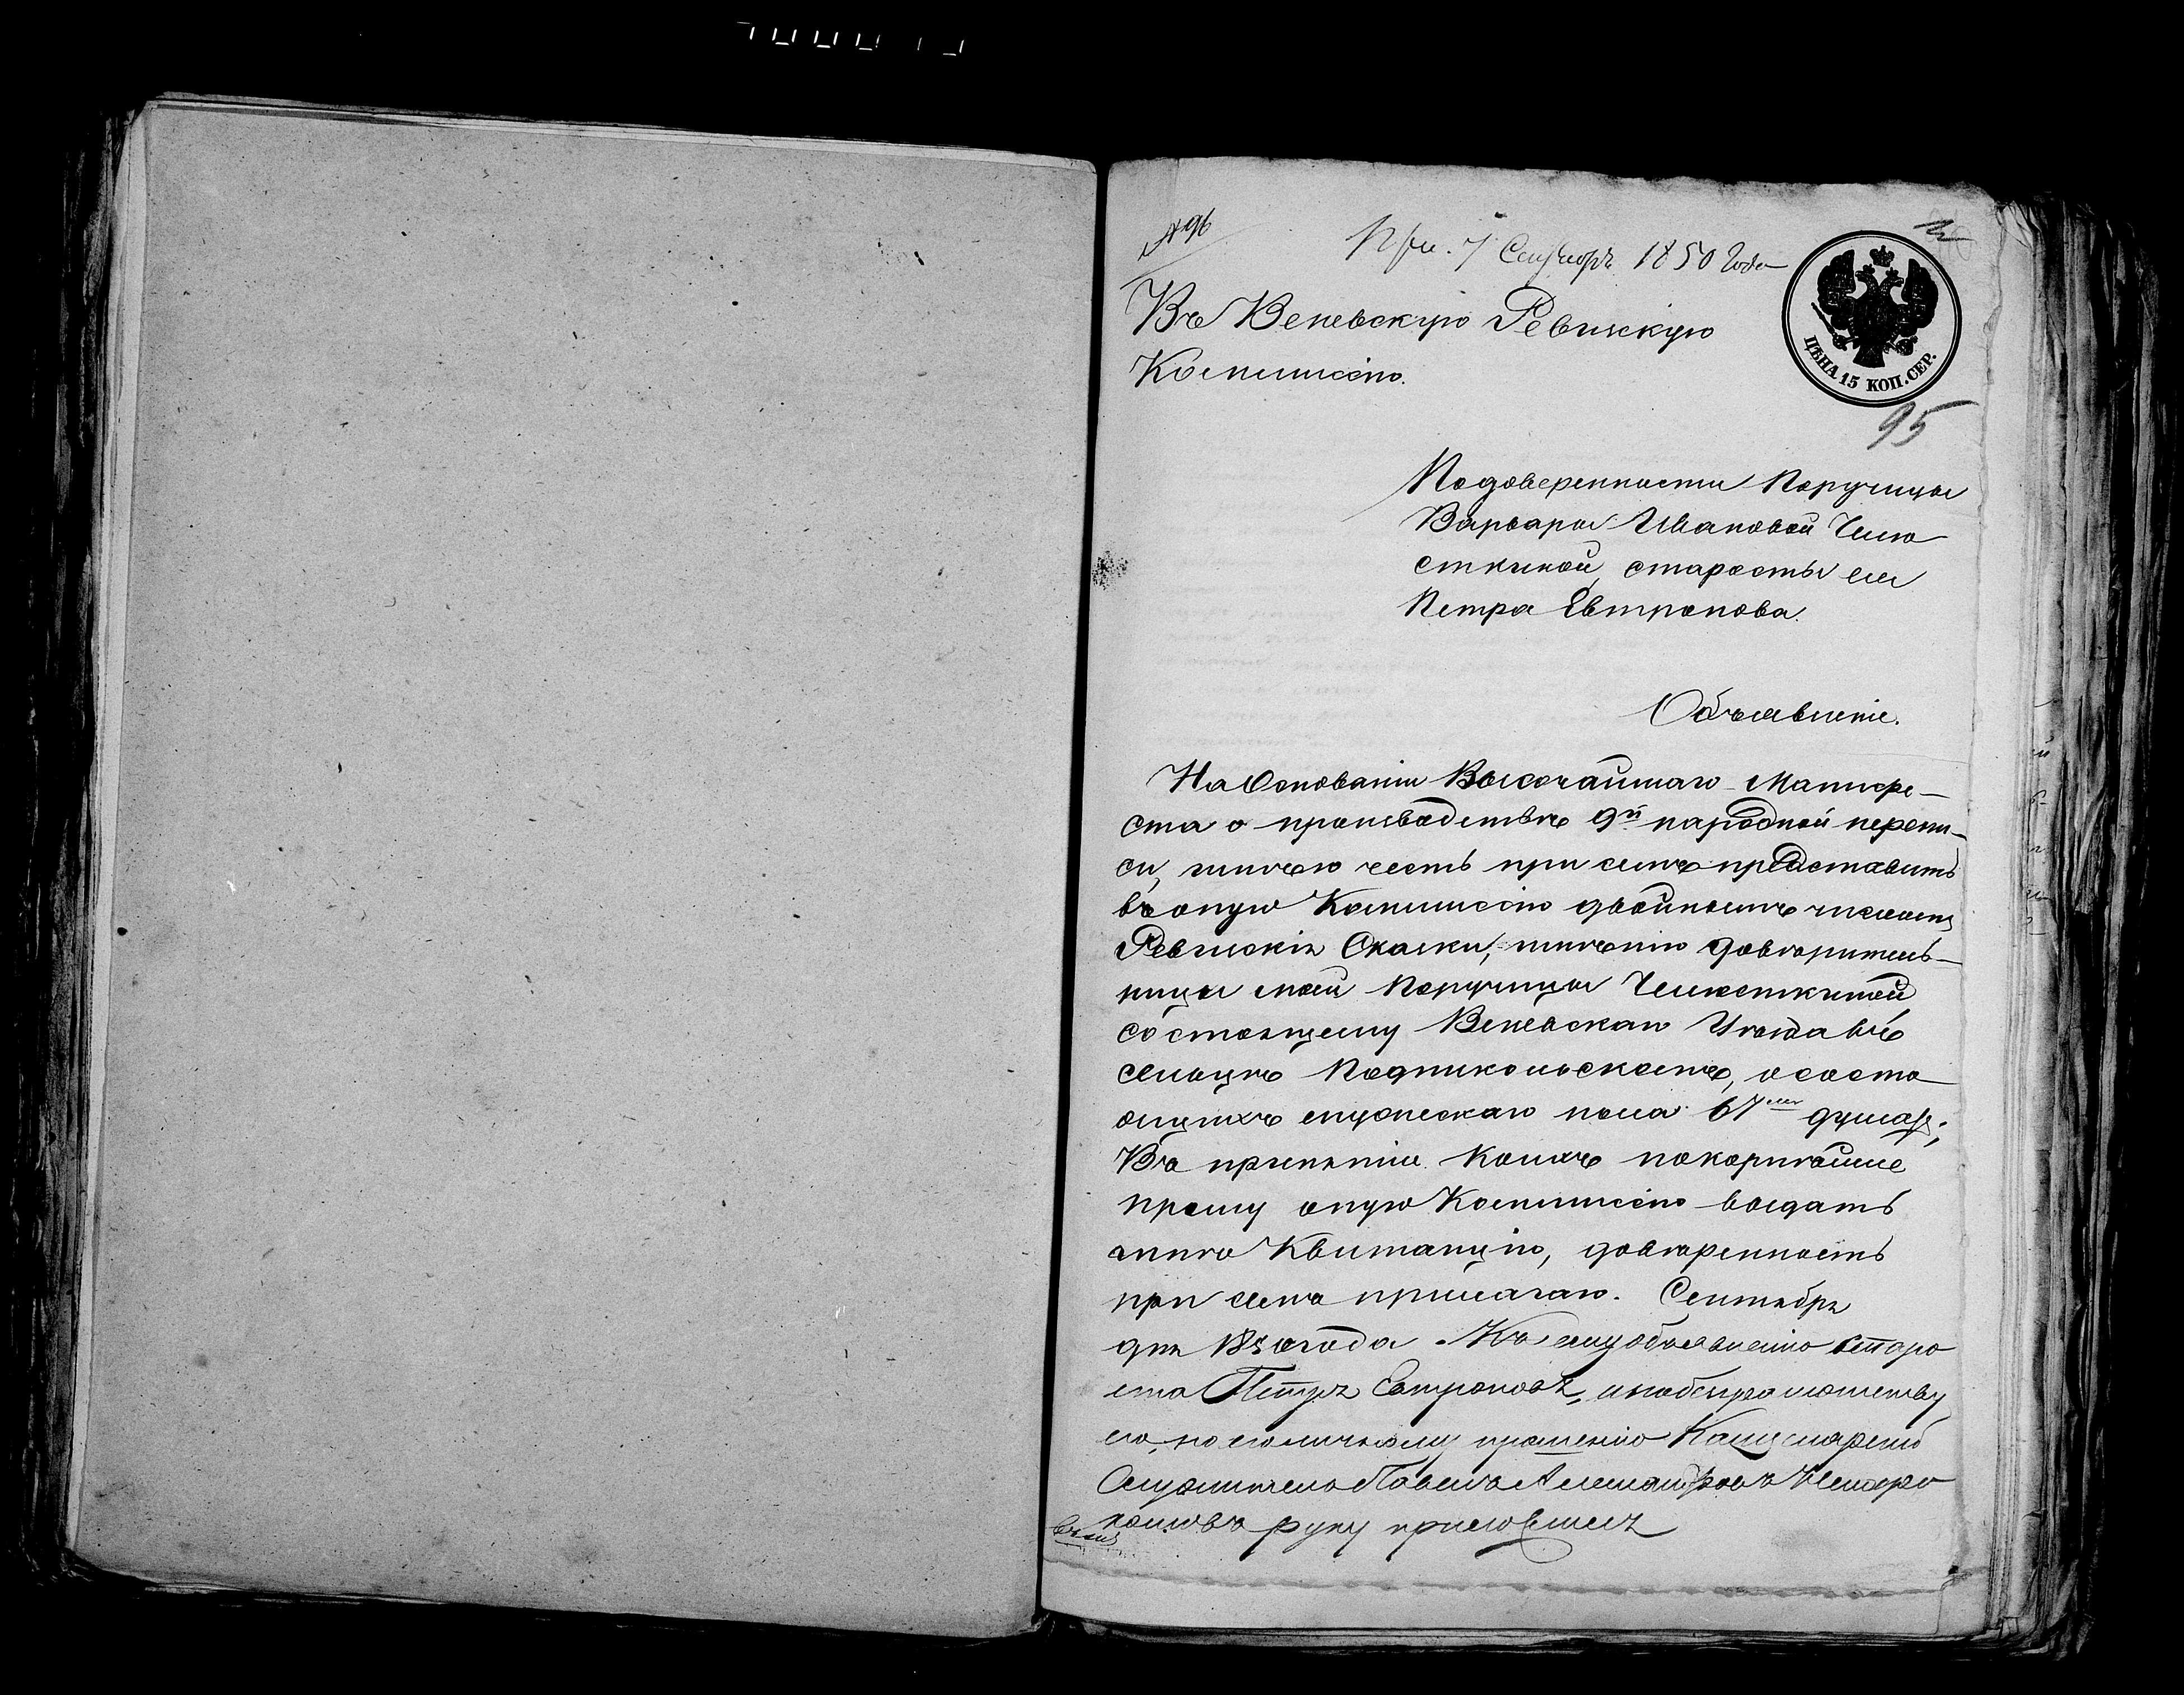 № 96
При. 7 Сентября 1850 Года
Въ Веневскую Ревизскую
Коммиссію.
ЦѢНА 15 КОП. СЕР.
95
Подоверенности Поручицы
Варвары Ивановой Челю
сткиной, старосты ея
Петра Евтропова.
Объявленіе.
На Основаніи Высочайшаго Манифе-
ста о производствѣ 9й народной перепи-
си, имѣю честь при семъ представить
въ оную Коммиссію двойномъ числомъ
Ревизскія Сказки, имѣнію довѣритель-
ницы моей Поручицы Челюсткиной
состоящему Веневскаго Уѣзда въ
сельцѣ Подникольскомъ, о состо
ящихъ мужескаго пола 67ми душах;
Въ принятіи коихъ покорнѣйше
прошу оную Коммиссію выдать
мнѣ Квитанцію, довѣренность
при семъ прилагаю. Сентября
дня 1850 года. Къ сему объявленію старо
ста Петръ Евтроповъ, а по безграмотству
его, по его личному прошенію Канцелярский
Служитель Павелъ Александровъ
руку приложилъ